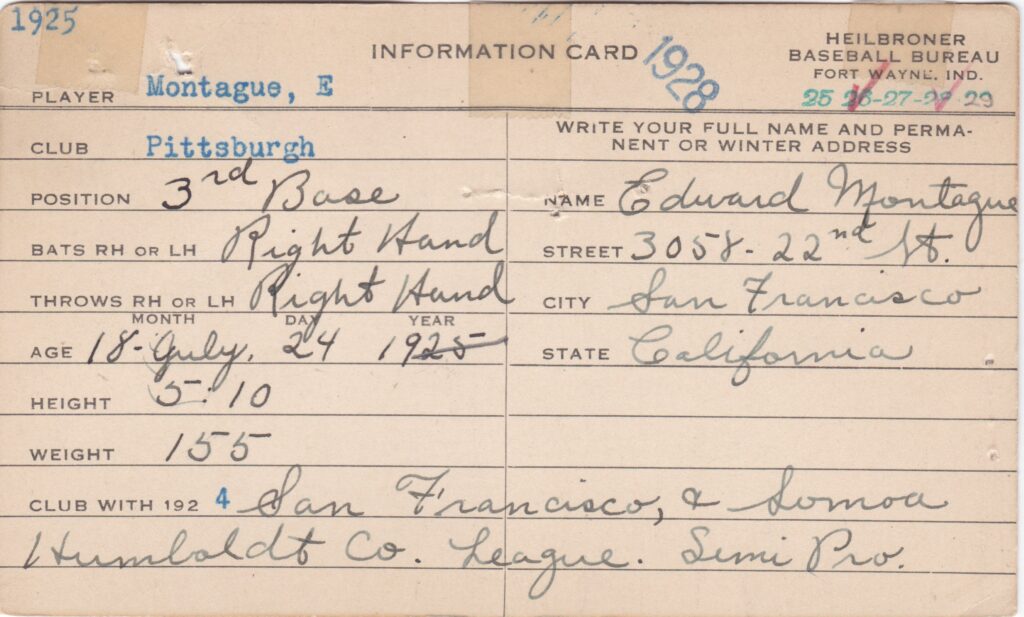 1925
INFORMATION CARD
1928
HEILBRONER
BASEBALL BUREAU
FORT WAYNE, IND.
25 26-27-28-29
PLAYER Montague, E
CLUB Pittsburgh
POSITION 3rd Base
BATS RH OR LH Right Hand
THROWS RH OR LH Right Hand
MONTH DAY YEAR
AGE 18- July. 24 1925
HEIGHT 5:10
WEIGHT 155
WRITE YOUR FULL NAME AND PERMA-
NENT OR WINTER ADDRESS
NAME Edward Montague
STREET 3058- 22nd St.
CITY San Francisco
STATE California
CLUB WITH 192 4 San Francisco, & Somoa
Humboldt Co. League. Semi Pro.